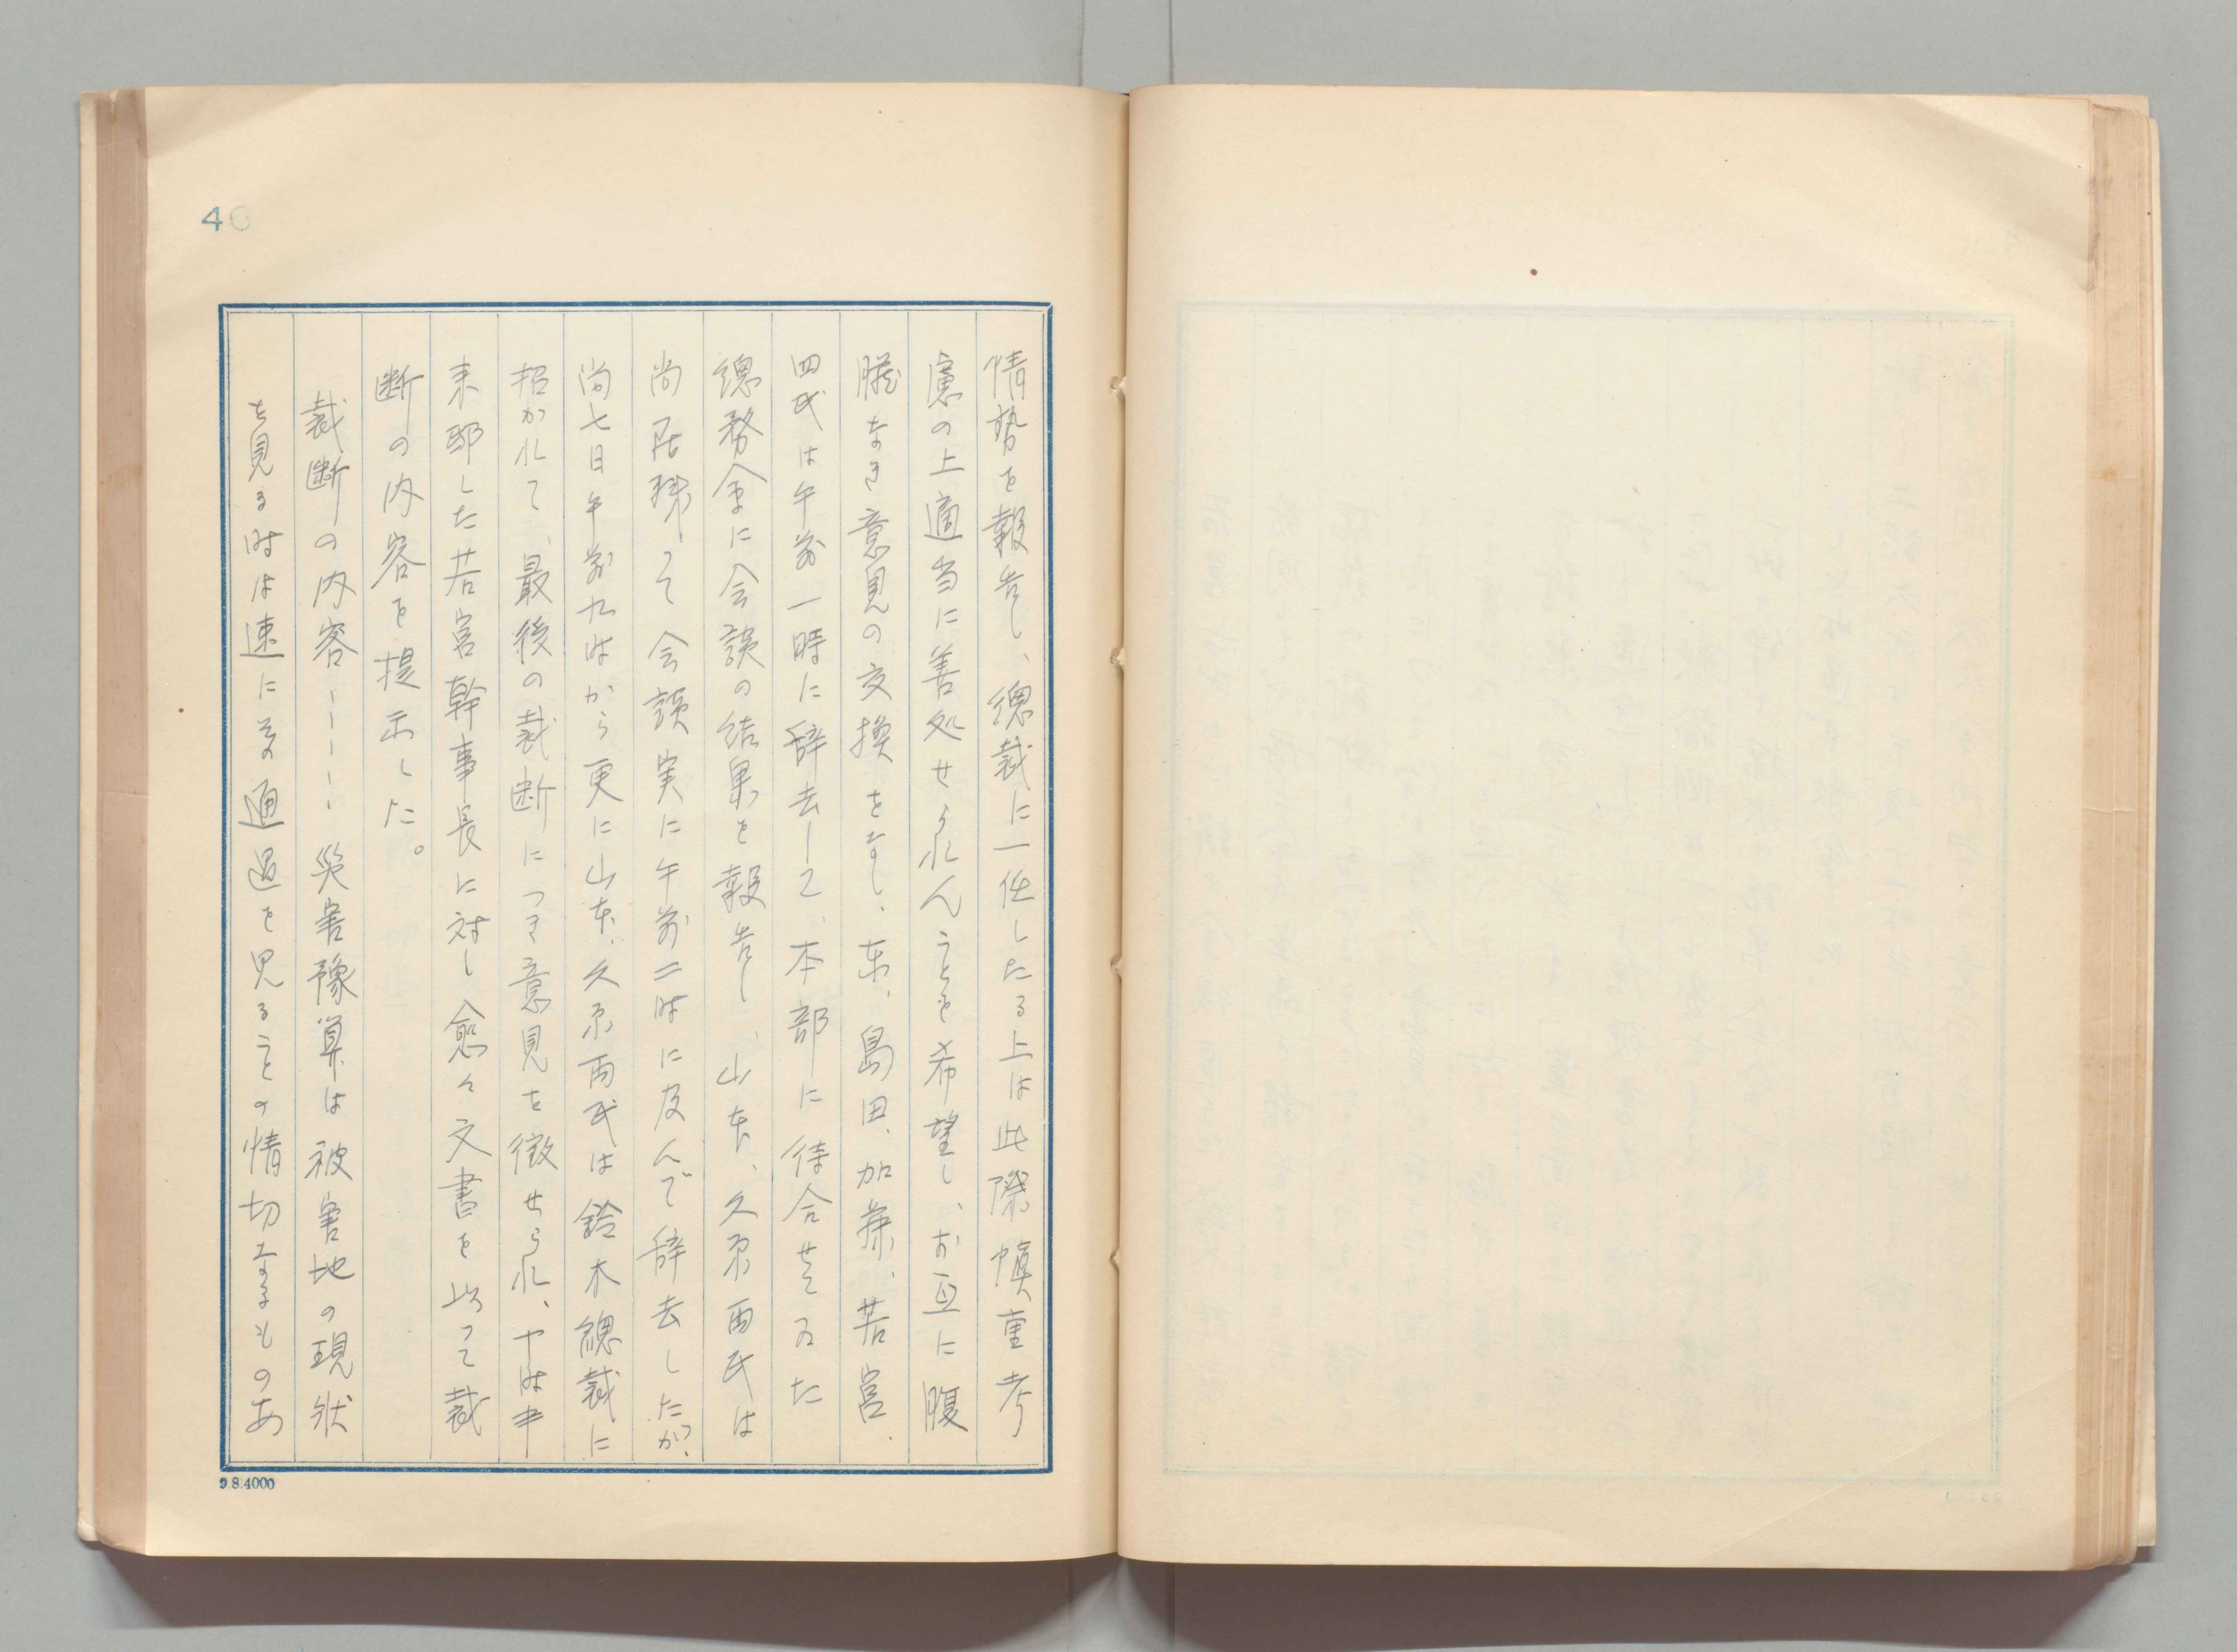 46
情勢を報告し、總裁に一任したる上は此際愼重考
慮の上適当に善処せられんことを希望し、お互に腹
臓なき意見の交換をなし、東、島田、加藤、若宮、
四氏は午前一時に辞去して、本部に待合せてゐた
總務会に会談の結果を報告し、山本、久原両氏は
尚居残って会談実に午前二時に及んで辞去したが、
尚七日午前九時から更に山本、久原両氏は鈴木總裁に
招かれて、最後の裁断につき意見を徴せられ、十時半
来邸した若宮幹事長に対し愈々文書を以って裁
断の内容を提示した。
裁断の内容――――災害豫算は被害地の現状
を見る時は速に通過を見ることの情切なるものあ
9.8.4000